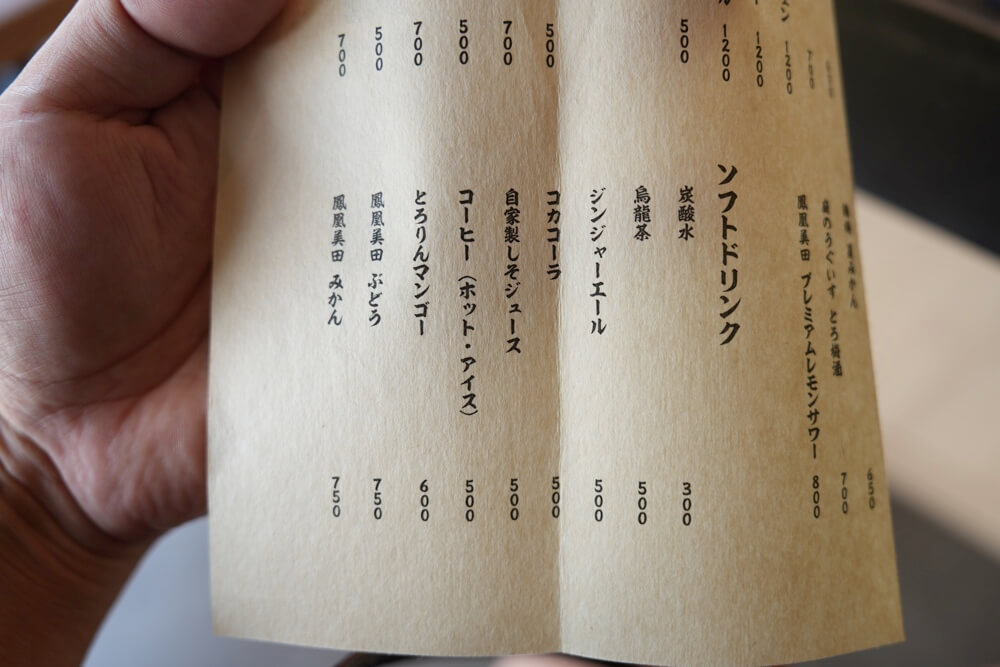 1200
1200
1200
500
500
700
500
700
500
700
みかん 650
庭のうぐいす とろ梅酒 700
鳳凰美田 プレミアムレモンサワー 800
ソフトドリンク
炭酸水 300
烏龍茶 500
ジンジャーエール 500
コカコーラ 500
自家製しそジュース 500
コーヒー（ホット・アイス） 500
とろりんマンゴー 600
鳳凰美田 ぶどう 750
鳳凰美田 みかん 750